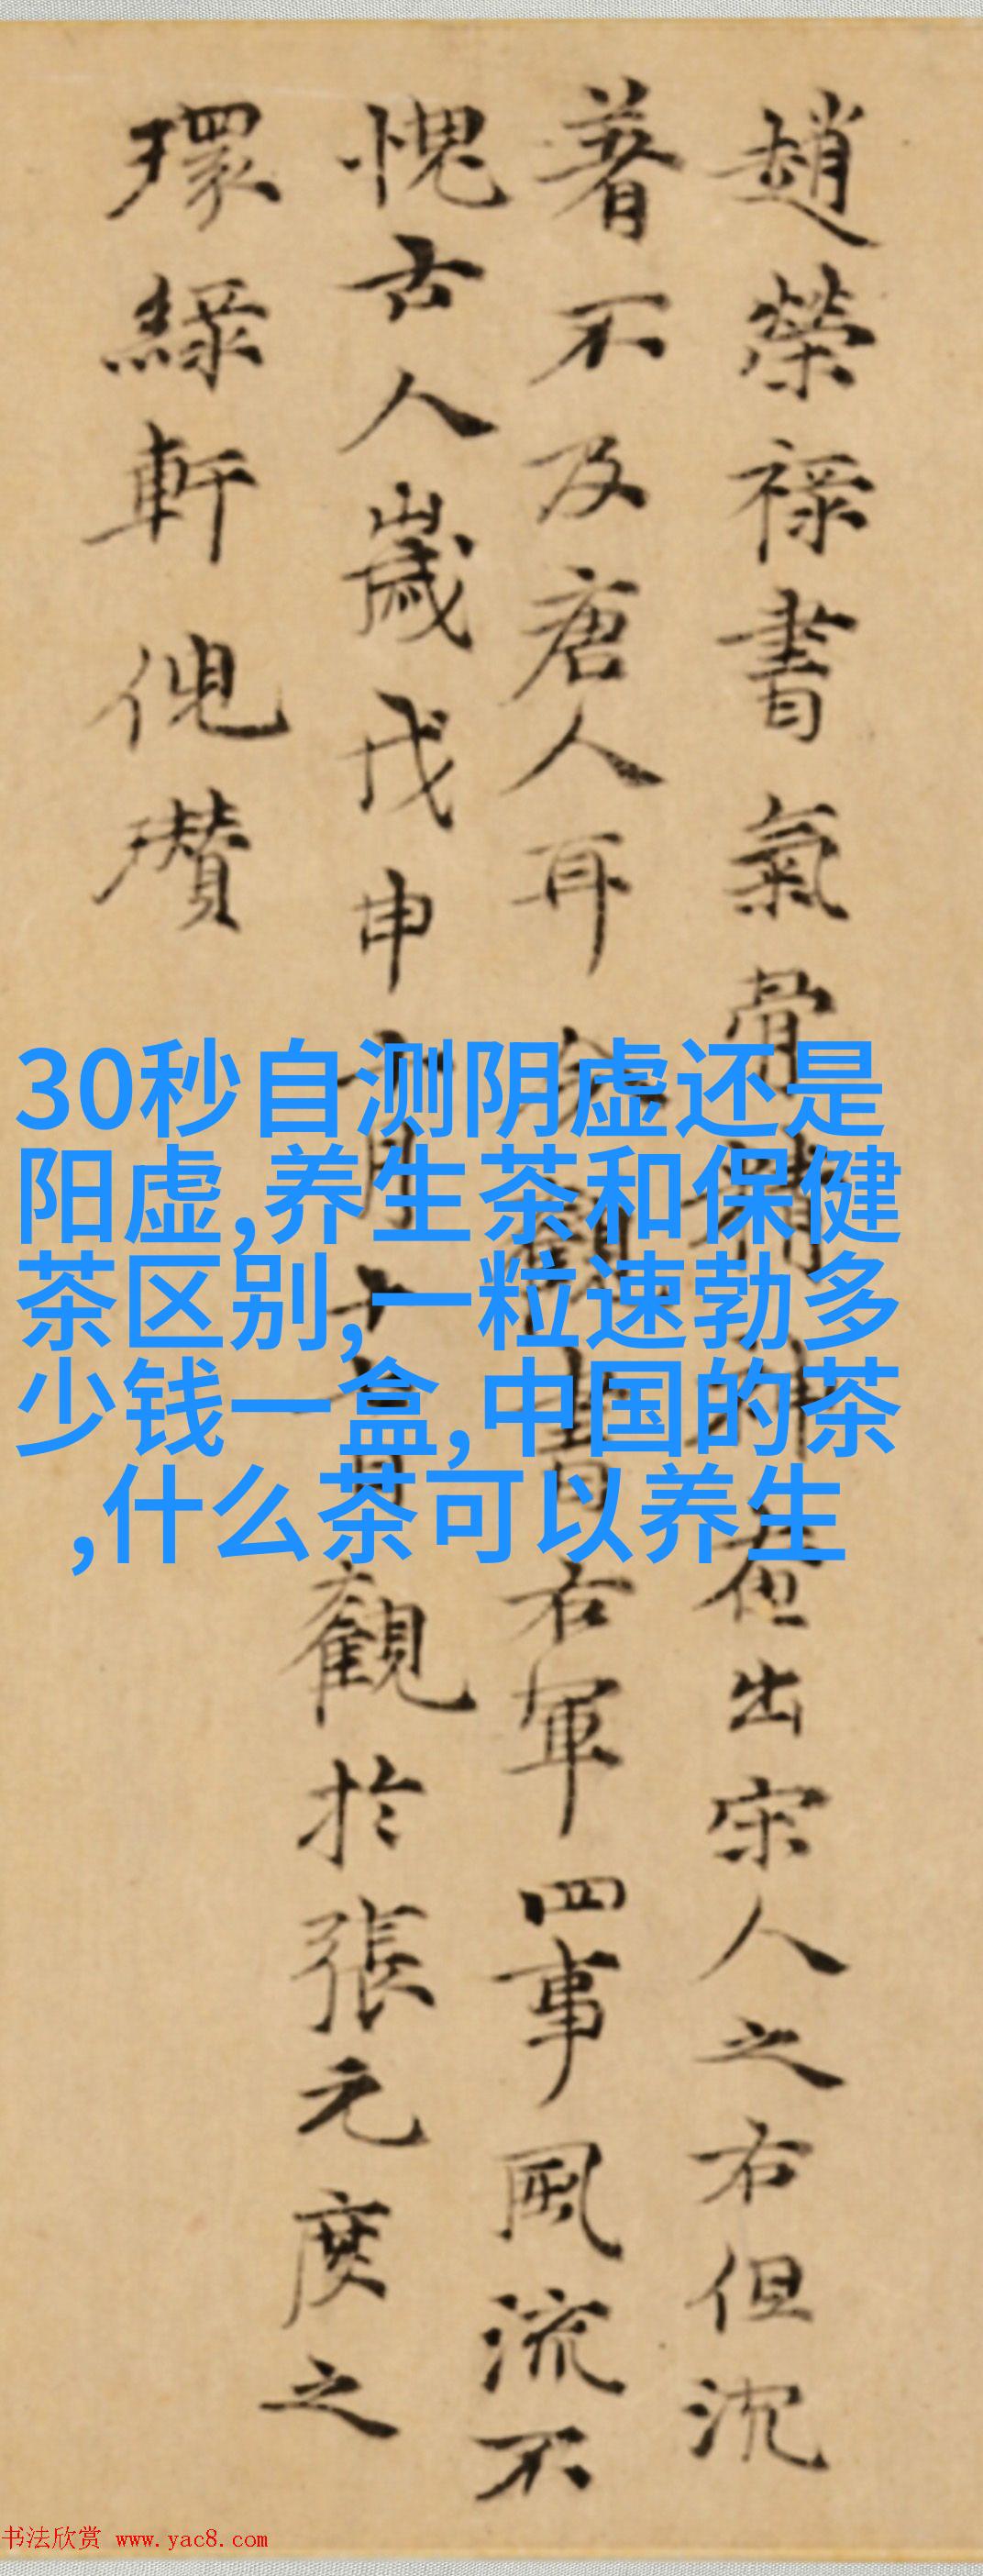 趙榮祿書氣骨精神在出宋人之右但沈
著不及唐人耳今觀書右軍四事風流不
愧古人歲戊申十月十一日觀於張元度之
環綠軒倪瓚
30秒自测阴虚还是
阳虚,养生茶和保健
茶区别,一粒速勃多
少钱一盒,中国的茶
,什么茶可以养生
书法欣赏 www.yac8.com